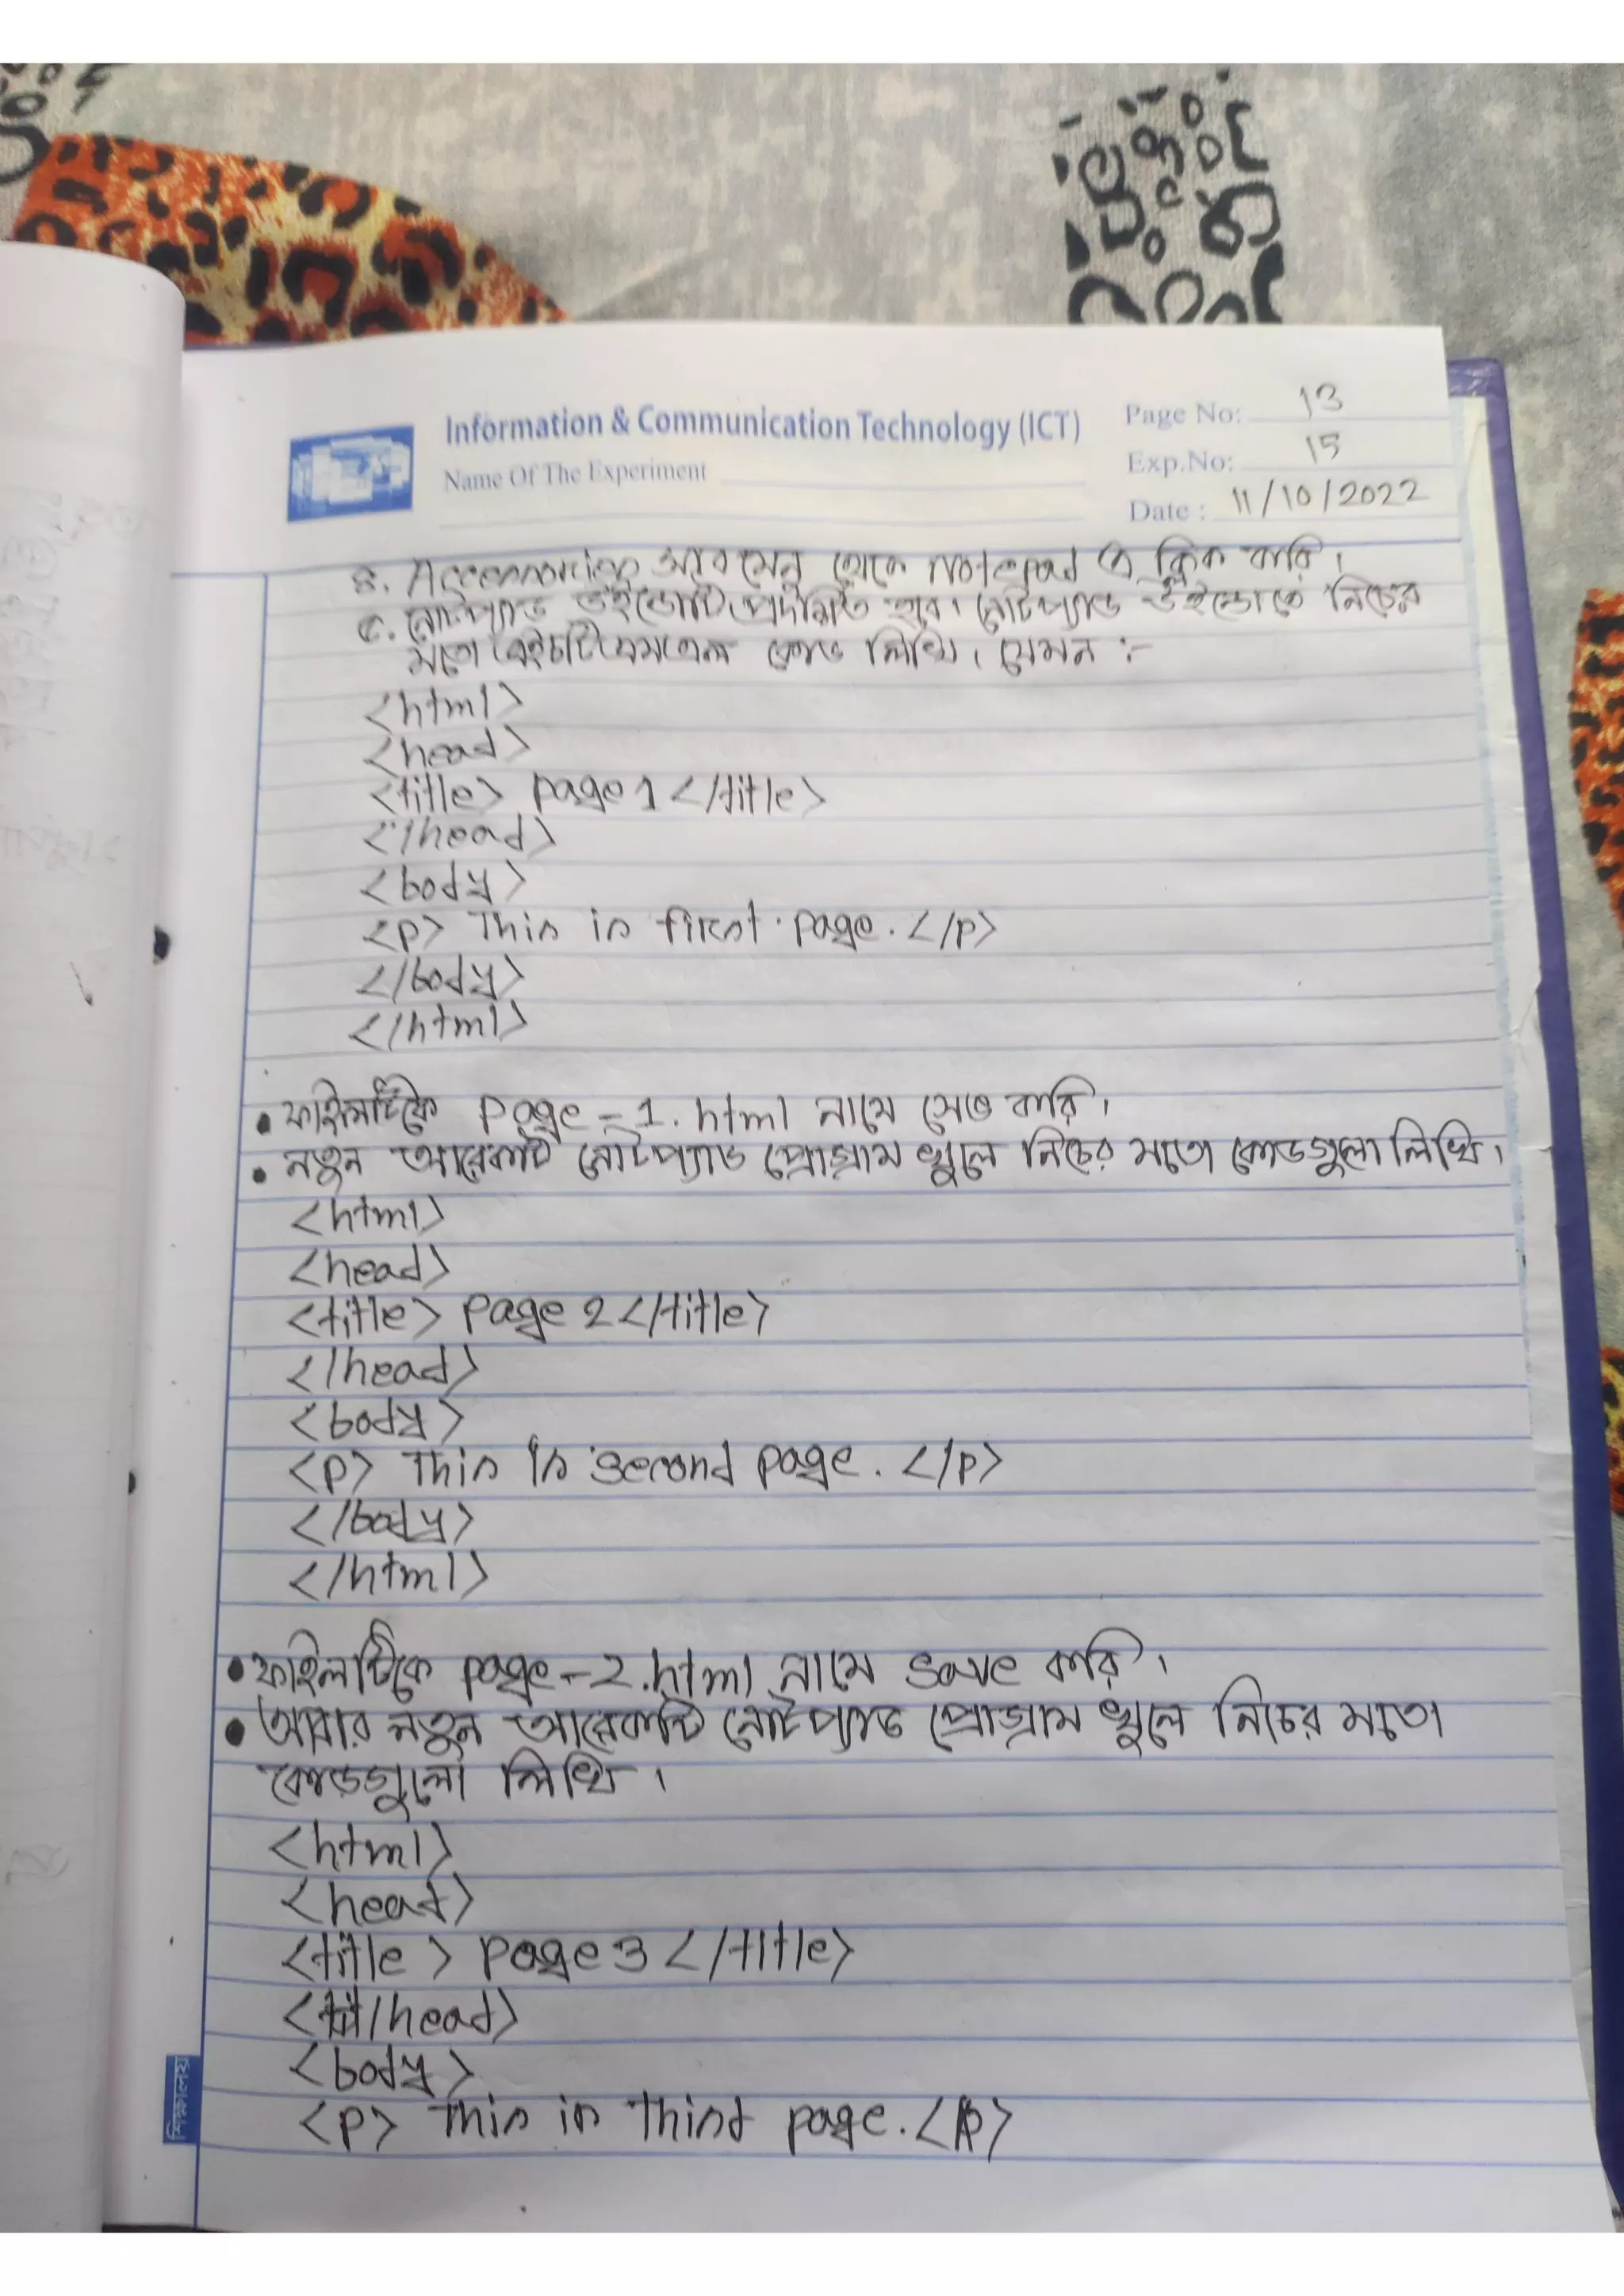 Information & Communication Technology (ICT)
Page No: 13
Name Of The Experiment
Exp.No: 15
Date : 11/10/2022
৪. Accessories সাবমেনু থেকে Notepad এ ক্লিক করি।
৫. নোটপ্যাড উইন্ডোটি প্রদর্শিত হবে। নোটপ্যাড উইন্ডোতে নিচের
মতো এইচটিএমএল কোড লিখি। যেমন :-
<html>
<head>
<title> page 1 </title>
</head>
<body>
<p> This is first page. </p>
</body>
</html>
• ফাইলটিকে page-1.html নামে সেভ করি।
• নতুন আরেকটি নোটপ্যাড প্রোগ্রাম খুলে নিচের মতো কোডগুলো লিখি।
<html>
<head>
<title> page 2 </title>
</head>
<body>
<p> This is second page. </p>
</body>
</html>
• ফাইলটিকে page-2.html নামে save করি।
• আবার নতুন আরেকটি নোটপ্যাড প্রোগ্রাম খুলে নিচের মতো
কোডগুলো লিখি।
<html>
<head>
<title> page 3 </title>
</head>
<body>
<p> This is third page. </p>